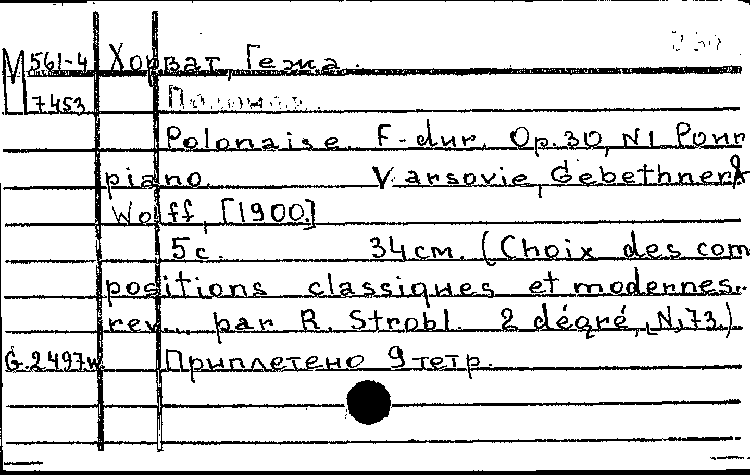 М 561-4 Хорват, Гежа.
7453 Полонез.
Polonaise F-dur. Op.30, N1 Pour
piano. Varsovie, Gebethner &
Wolff, [1900]
5 с. 34 см. (Choix des com
positions classiques et modernes.
rev... par R. Strobl. 2 dégré, N.73.)
G.2497w. Приплетено 9 тетр.